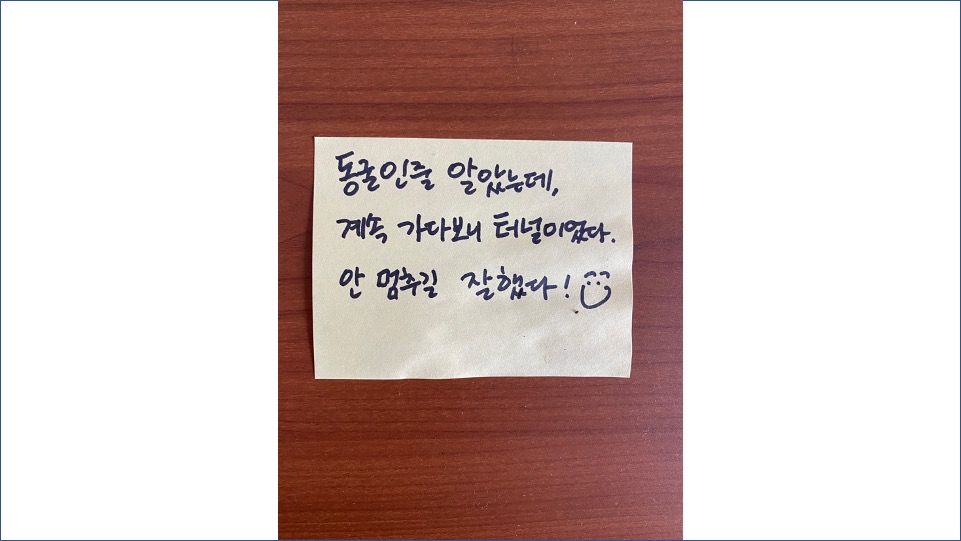 동굴인줄 알았는데,
계속 가다보니 터널이었다.
안 멈추길 잘했다!